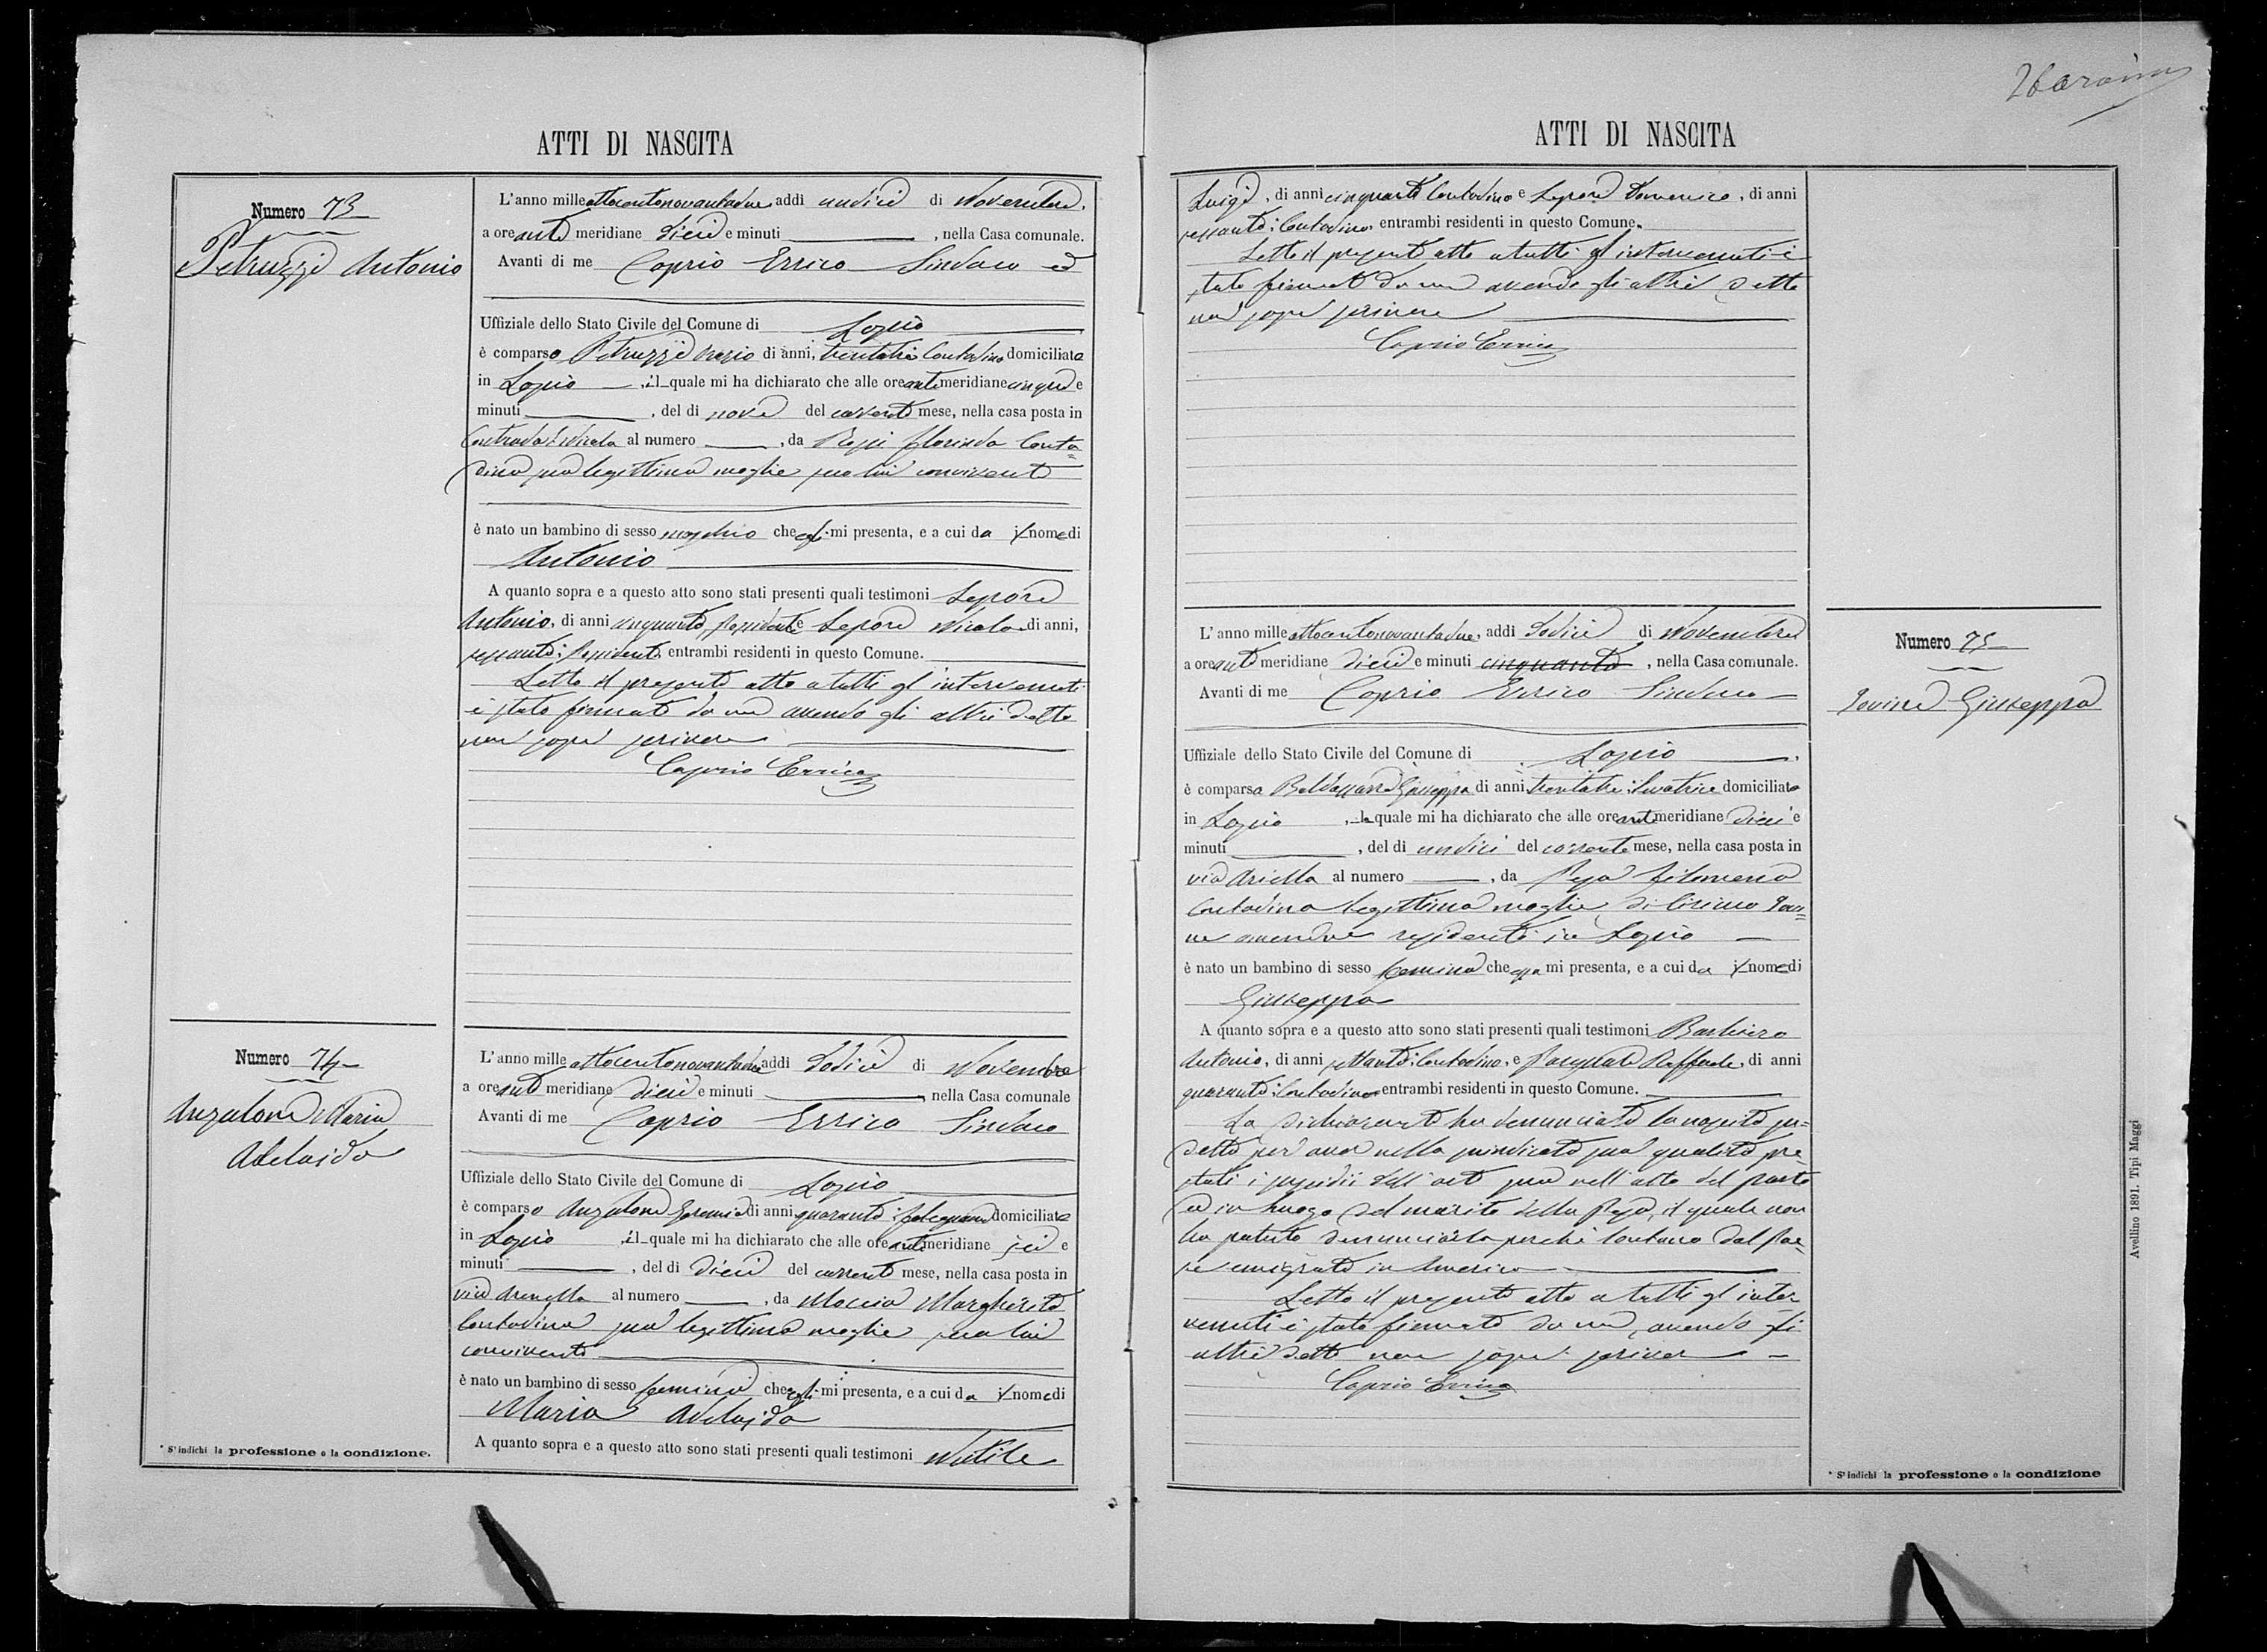 ATTI DI NASCITA
Numero 73
Petruzzi Antonio
L'anno milleottocentonovantadue addì undici di Novembre,
a ore anti meridiane dieci e minuti , nella Casa comunale.
Avanti di me Caprio Errico Sindaco ed
Uffiziale dello Stato Civile del Comune di Lapio
è comparso Petruzzi di anni, trentatre Contadino domiciliato
in Lapio , il quale mi ha dichiarato che alle ore anti meridiane cinque e
minuti , del dì nove del corrente mese, nella casa posta in
Contrada al numero , da Florinda Conta=
dina sua legittima moglie seco lui convivente
è nato un bambino di sesso maschio che egli mi presenta, e a cui da il nome di
Antonio
A quanto sopra e a questo atto sono stati presenti quali testimoni Lepore
Antonio, di anni cinquanta, possidente e Lepore Nicola di anni,
sessanta: Possidente entrambi residenti in questo Comune.
Letto il presente atto a tutti gl'intervenuti
è stato firmato da me avendo gli altri detto
non saper scrivere
Caprio Errico
Numero 74
Anzalone Maria
Adelaida
L'anno mille ottocentonovantadue addì dodici di Novembre
a ore anti meridiane dieci e minuti , nella Casa comunale
Avanti di me Caprio Errico Sindaco
Uffiziale dello Stato Civile del Comune di Lapio
è comparso Anzalone di anni quaranta: falegname domiciliato
in Lapio , il quale mi ha dichiarato che alle ore anti meridiane sei e
minuti , del dì dieci del corrente mese, nella casa posta in
via al numero , da Moccia Margherita
Contadina sua legittima moglie seco lui
convivente
è nato un bambino di sesso femmina che egli mi presenta, e a cui da il nome di
Maria Adelaida
A quanto sopra e a questo atto sono stati presenti quali testimoni
* S'indichi la professione o la condizione.
ATTI DI NASCITA
Luigi, di anni cinquanta Contadino e Lepore Domenico, di anni
sessanta: Contadino entrambi residenti in questo Comune.
Letto il presente atto a tutti gl'intervenuti è
stato firmato da me avendo gli altri detto
non saper scrivere
Caprio Errico
L'anno mille ottocentonovantadue, addì dodici di Novembre
a ore anti meridiane dieci e minuti cinquanta , nella Casa comunale.
Avanti di me Caprio Errico Sindaco
Uffiziale dello Stato Civile del Comune di Lapio
è comparsa Baldassarre Giuseppa di anni trentatre: Levatrice domiciliata
in Lapio , la quale mi ha dichiarato che alle ore anti meridiane dieci e
minuti , del dì undici del corrente mese, nella casa posta in
via Ariella al numero , da Filomena
Contadina legittima moglie di Ciriaco Iovi=
ne amendue residenti in Lapio
è nato un bambino di sesso femmina che essa mi presenta, e a cui da il nome di
Giuseppa
A quanto sopra e a questo atto sono stati presenti quali testimoni Barbiero
Antonio, di anni settanta: Contadino, e Raffaele, di anni
quaranta: Contadino entrambi residenti in questo Comune.
La dichiarante ha denunciato la nascita su=
detta per aver nella suindicata sua qualità pre=
stati i sussidii dell'arte sua nell'atto del parto
ed in luogo del marito della , il quale non
ha potuto denunciarla perchè lontano dal pae=
se emigrato in America
Letto il presente atto a tutti gl'inter
venuti è stato firmato da me, avendo gli
altri detto non saper scrivere
Caprio Errico
Numero 75
Iovine Giuseppa
* S'indichi la professione o la condizione
Avellino 1891. Tipi Maggi